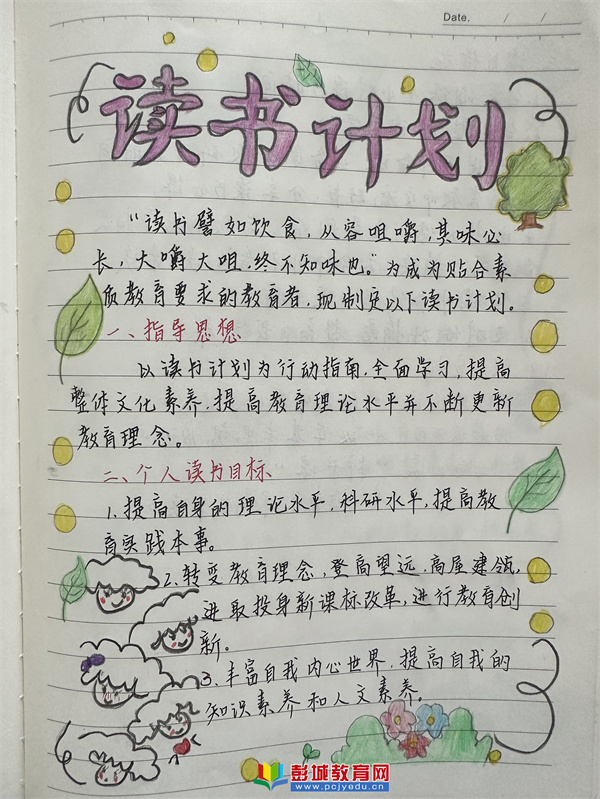 Date. / /
读书计划
"读书譬如饮食,从容咀嚼,其味必
长,大嚼大咀,终不知味也。"为成为贴合素
质教育要求的教育者,现制定以下读书计划。
一、指导思想
以读书计划为行动指南,全面学习,提高
整体文化素养,提高教育理论水平并不断更新
教育理念。
二、个人读书目标
1.提高自身的理论水平,科研水平,提高教
育实践本事。
2.转变教育理念,登高望远,高屋建瓴,
进取投身新课标改革,进行教育创
新。
3.丰富自我内心世界,提高自我的
知识素养和人文素养。
彭城教育网
www.pcjyedu.cn